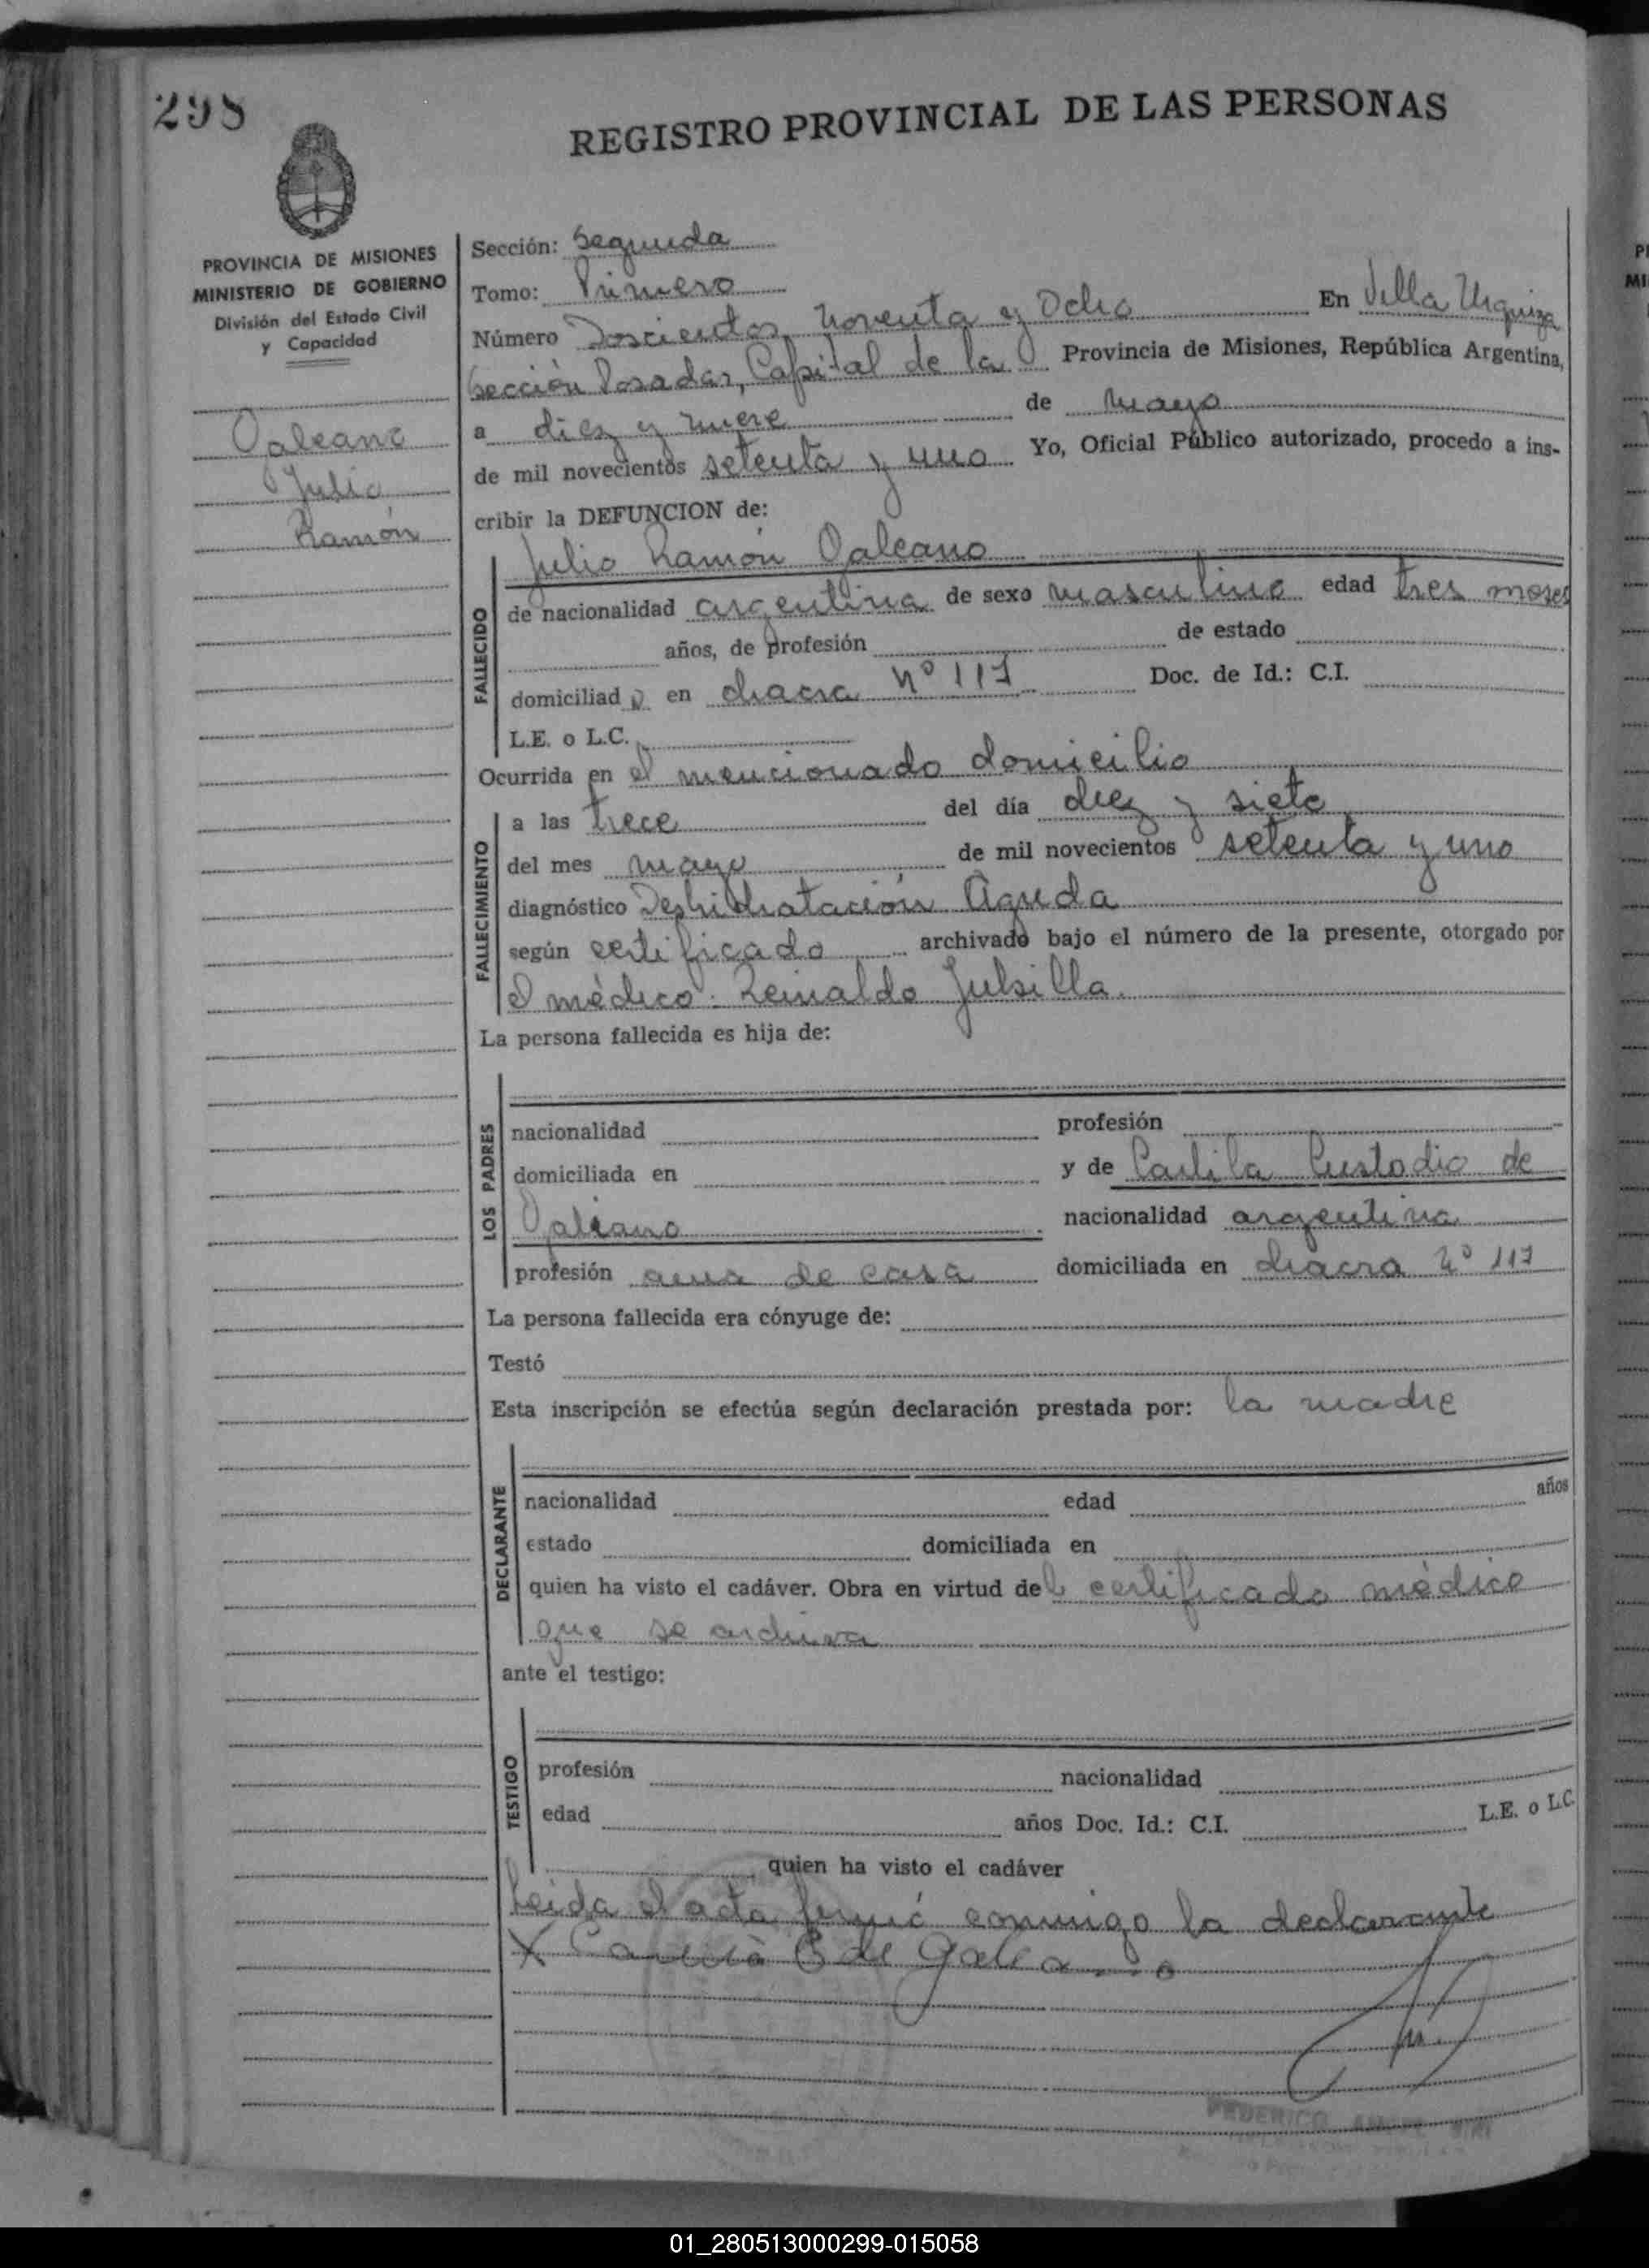 298
REGISTRO PROVINCIAL DE LAS PERSONAS
PROVINCIA DE MISIONES
MINISTERIO DE GOBIERNO
División del Estado Civil
y Capacidad
Galeano
Julio
Ramón
Sección: Segunda
Tomo: Primero
Número Doscientos Noventa y Ocho En Villa Urquiza
Sección Posadas, Capital de la Provincia de Misiones, República Argentina,
a diez y nueve de mayo
de mil novecientos setenta y uno Yo, Oficial Público autorizado, procedo a ins-
cribir la DEFUNCION de:
Julio Ramón Galeano
FALLECIDO
de nacionalidad argentina de sexo masculino edad tres meses
años, de profesión de estado
domiciliado en chacra Nº 117 Doc. de Id.: C.I.
L.E. o L.C.
Ocurrida en el mencionado domicilio
FALLECIMIENTO
a las trece del día diez y siete
del mes mayo de mil novecientos setenta y uno
diagnóstico Deshidratación Aguda
según certificado archivado bajo el número de la presente, otorgado por
el médico: Reinaldo
La persona fallecida es hija de:
LOS PADRES
nacionalidad profesión
domiciliada en y de Custodio de
Galeano nacionalidad argentina
profesión ama de casa domiciliada en chacra Nº 117
La persona fallecida era cónyuge de:
Testó
Esta inscripción se efectúa según declaración prestada por: la madre
DECLARANTE
nacionalidad edad años
estado domiciliada en
quien ha visto el cadáver. Obra en virtud del certificado médico
que se archiva
ante el testigo:
TESTIGO
profesión nacionalidad
edad años Doc. Id.: C.I. L.E. o L.C.
quien ha visto el cadáver
Leida el acta firmó conmigo la declarante
X C de Galeano
FEDERICO
01_280513000299-015058